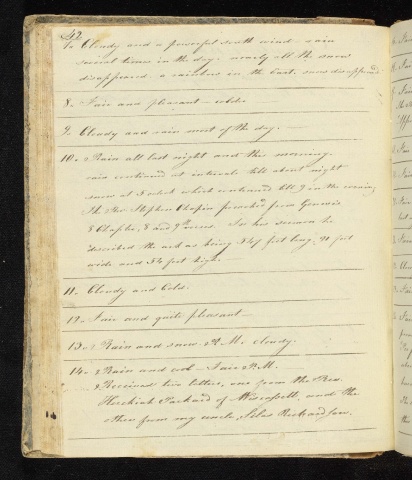 42
7. Cloudy and a powerful south wind - rain
several times in the day. nearly all the snow
disappeared a rainbow in the east. snow disappeared
8. Fair and pleasant - colder
9. Cloudy and rain most of the day.
10. Rain all last night and this morning.
rain continued at intervals till about night
snow at 5 oclock which continued till 9 in the evening
The Rev. Stephen Chapin preached from Genesis
8 Chapter, 8 and 9th verses. In his sermon he
described the ark as being 547 feet long, 91 feet
wide and 54 feet high.
11. Cloudy and Cold.
12. Fair and quite pleasant
13. Rain and snow A.M. cloudy.
14. Rain and cool - Fair P.M.
Received two letters, one from the Rev.
Hezekiah Packard of Wiscassett, and the
other from my uncle Silas Richardson.